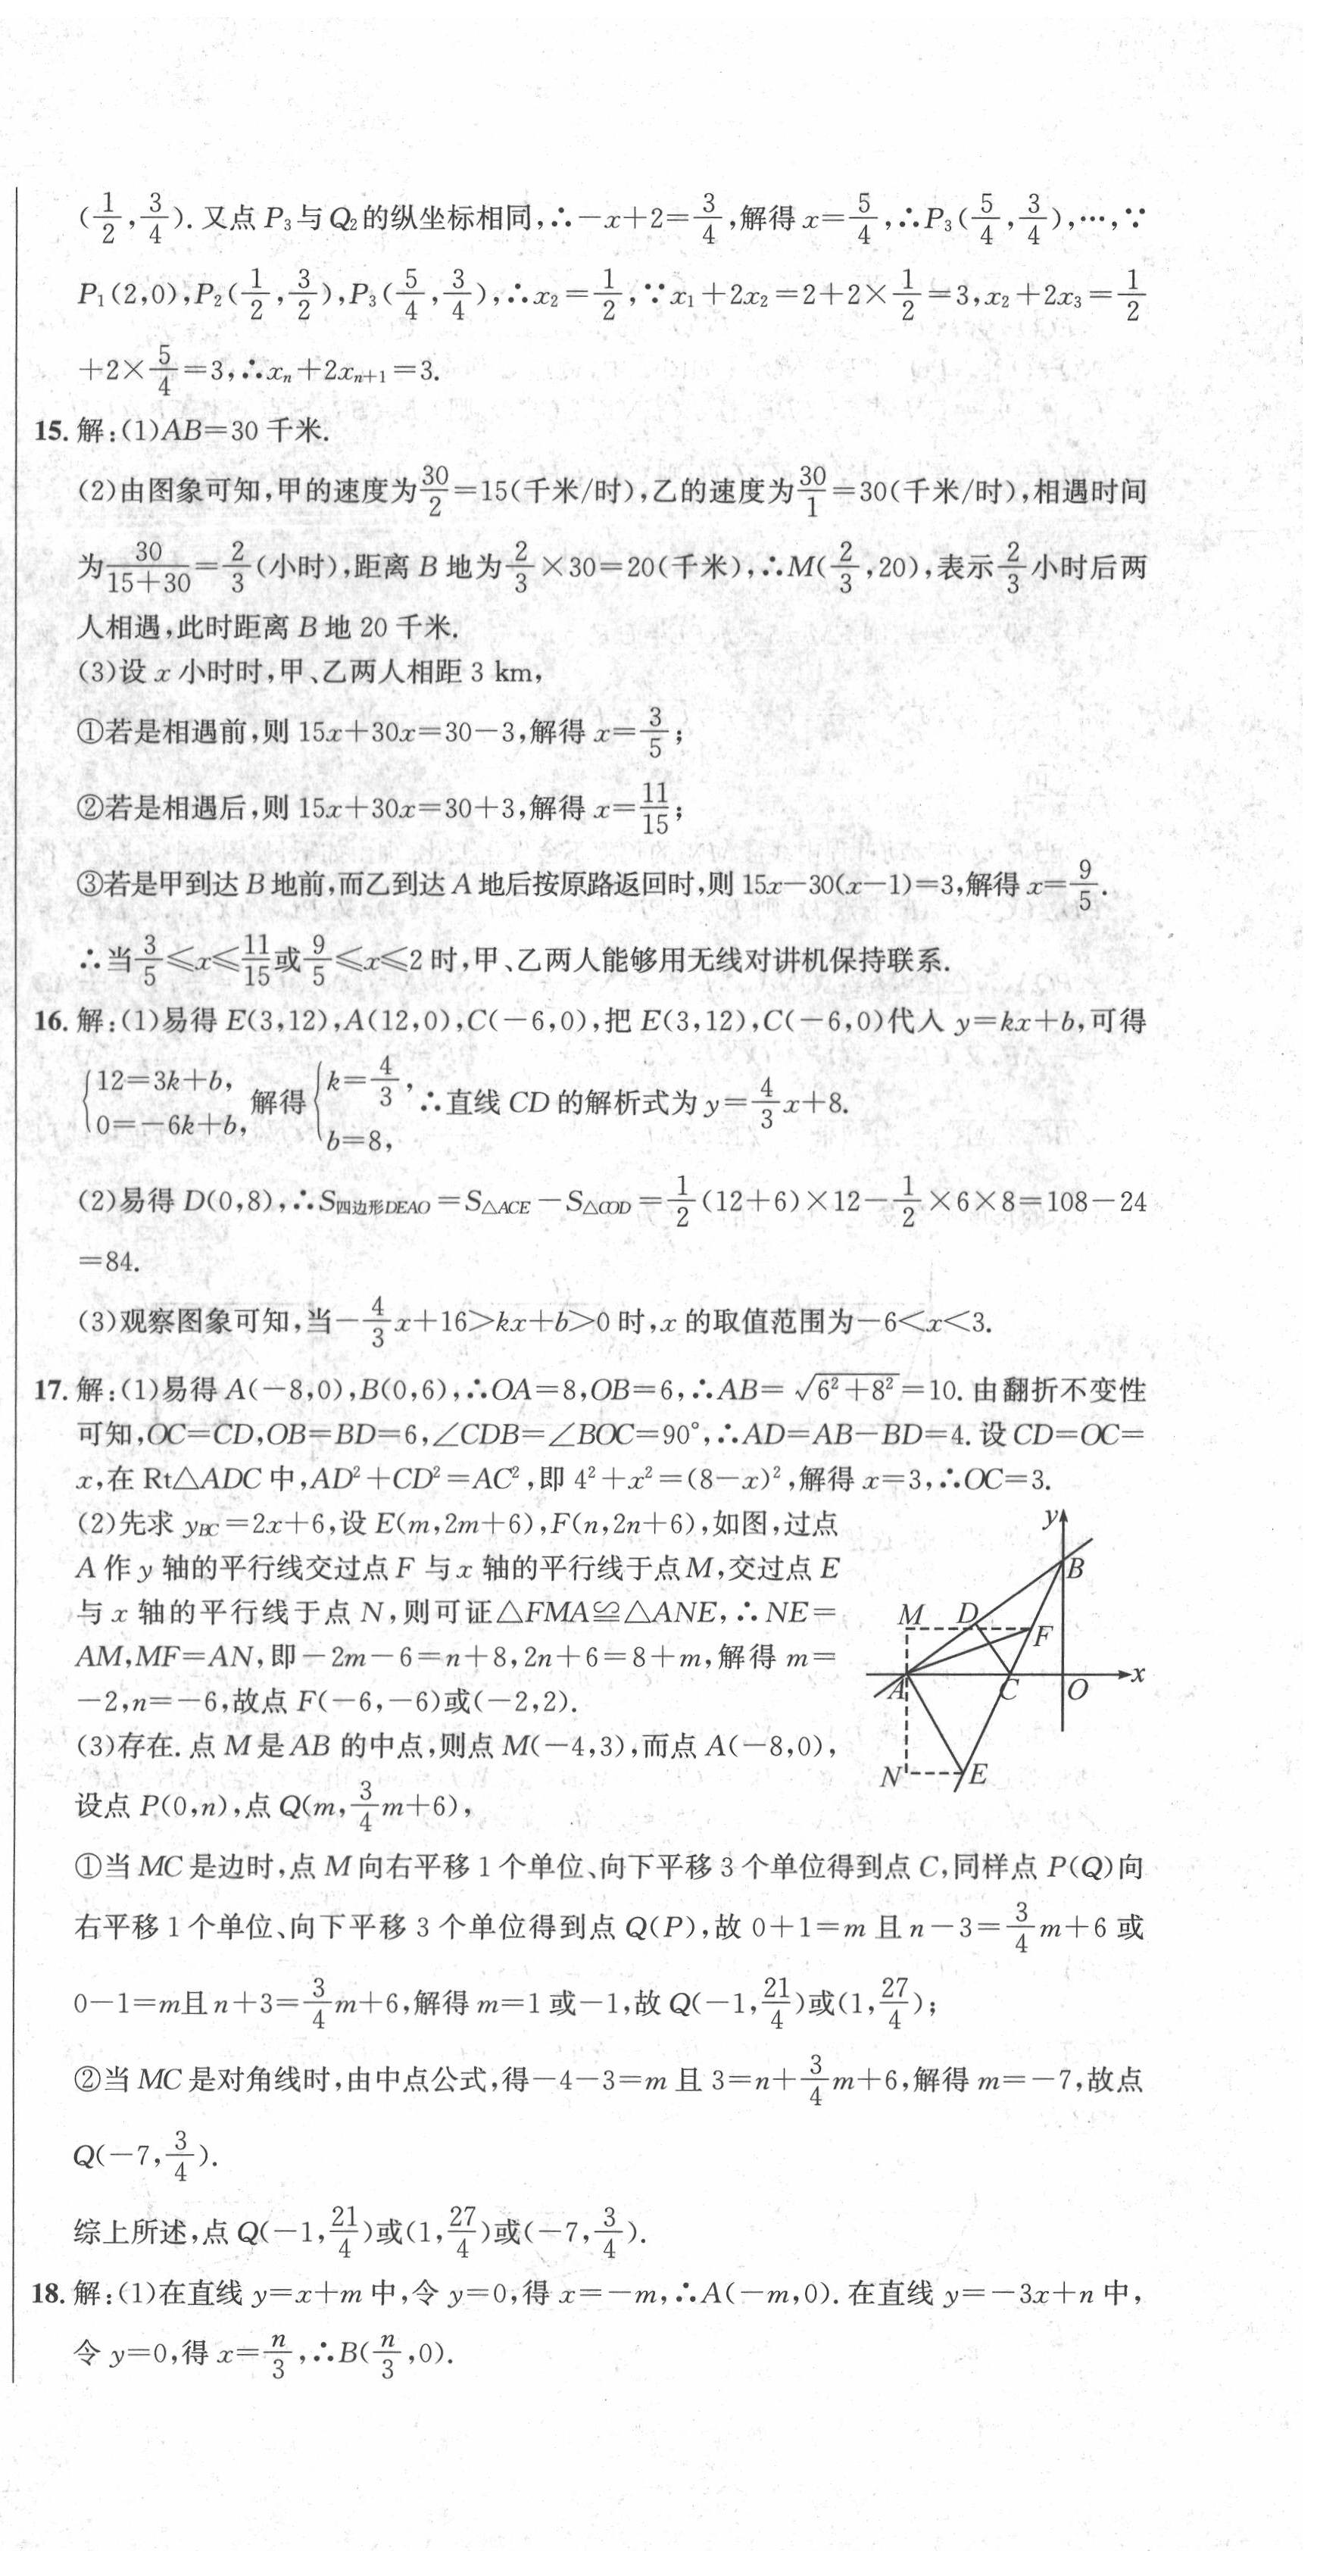 (1/2,3/4).又点P₃与Q₂的纵坐标相同,∴−x+2=3/4,解得x=5/4,∴P₃(5/4,3/4),…,∵
P₁(2,0),P₂(1/2,3/2),P₃(5/4,3/4),∴x₂=1/2,∵x₁+2x₂=2+2×1/2=3,x₂+2x₃=1/2
+2×5/4=3,∴xₙ+2xₙ₊₁=3.
15.解:(1)AB=30千米.
(2)由图象可知,甲的速度为30/2=15(千米/时),乙的速度为30/1=30(千米/时),相遇时间
为30/(15+30)=2/3(小时),距离B地为2/3×30=20(千米),∴M(2/3,20),表示2/3小时后两
人相遇,此时距离B地20千米.
(3)设x小时时,甲、乙两人相距3 km,
①若是相遇前,则15x+30x=30−3,解得x=3/5;
②若是相遇后,则15x+30x=30+3,解得x=11/15;
③若是甲到达B地前,而乙到达A地后按原路返回时,则15x−30(x−1)=3,解得x=9/5.
∴当3/5≤x≤11/15或9/5≤x≤2时,甲、乙两人能够用无线对讲机保持联系.
16.解:(1)易得E(3,12),A(12,0),C(−6,0),把E(3,12),C(−6,0)代入y=kx+b,可得
{12=3k+b, 0=−6k+b, 解得{k=4/3, b=8, ∴直线CD的解析式为y=4/3x+8.
(2)易得D(0,8),∴S四边形DEAO=S△ACE−S△COD=1/2(12+6)×12−1/2×6×8=108−24
=84.
(3)观察图象可知,当−4/3x+16>kx+b>0时,x的取值范围为−6<x<3.
17.解:(1)易得A(−8,0),B(0,6),∴OA=8,OB=6,∴AB=√(6²+8²)=10.由翻折不变性
可知,OC=CD,OB=BD=6,∠CDB=∠BOC=90°,∴AD=AB−BD=4.设CD=OC=
x,在Rt△ADC中,AD²+CD²=AC²,即4²+x²=(8−x)²,解得x=3,∴OC=3.
(2)先求y_BC=2x+6,设E(m,2m+6),F(n,2n+6),如图,过点
A作y轴的平行线交过点F与x轴的平行线于点M,交过点E
与x轴的平行线于点N,则可证△FMA≌△ANE,∴NE=
AM,MF=AN,即−2m−6=n+8,2n+6=8+m,解得m=
−2,n=−6,故点F(−6,−6)或(−2,2).
y
B
M D
F
A C O x
N E
(3)存在.点M是AB的中点,则点M(−4,3),而点A(−8,0),
设点P(0,n),点Q(m,3/4m+6),
①当MC是边时,点M向右平移1个单位、向下平移3个单位得到点C,同样点P(Q)向
右平移1个单位、向下平移3个单位得到点Q(P),故0+1=m且n−3=3/4m+6或
0−1=m且n+3=3/4m+6,解得m=1或−1,故Q(−1,21/4)或(1,27/4);
②当MC是对角线时,由中点公式,得−4−3=m且3=n+3/4m+6,解得m=−7,故点
Q(−7,3/4).
综上所述,点Q(−1,21/4)或(1,27/4)或(−7,3/4).
18.解:(1)在直线y=x+m中,令y=0,得x=−m,∴A(−m,0).在直线y=−3x+n中,
令y=0,得x=n/3,∴B(n/3,0).